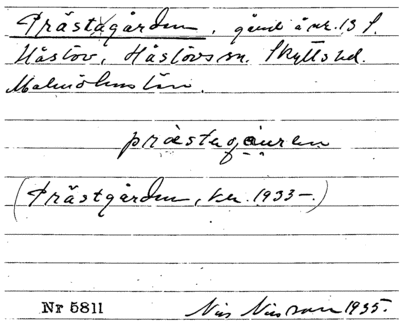 Prästagården, gård å nr. 13 f.
Håslöv, Håslövs sn. Skytts hd.
Malmöhus län.
prästagåuren
(Prästgården, ker. 1933–.)
Nr 5811 Nils Nilsson 1935.